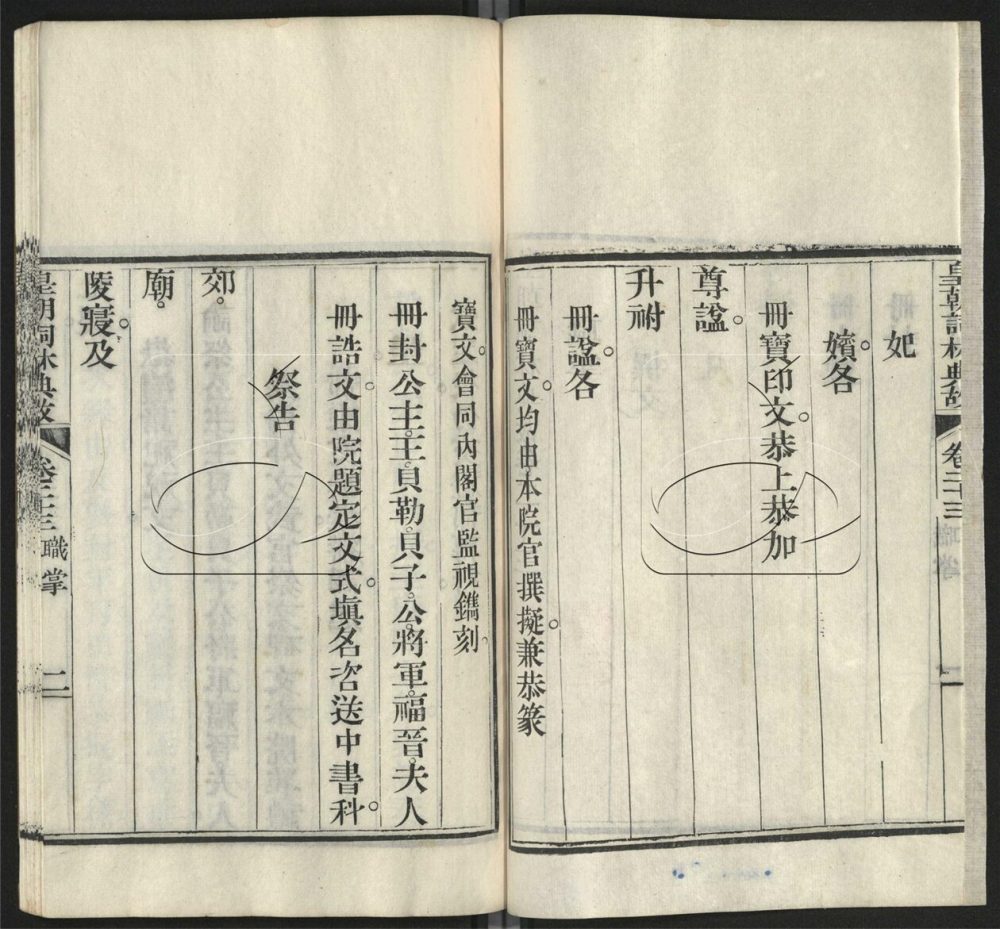 皇朝詞林典故 卷二十三 職掌 二
妃
嬪。各
冊寶印文。恭上恭加
尊諡。
升祔
冊諡。各
冊寶文。均由本院官撰擬。兼恭篆
寶文。會同內閣官監視鐫刻。
冊封公主。王。貝勒。貝子。公。將軍。福晉。夫人。
冊誥文。由院題定文式。塡名咨送中書科。
祭告
郊。
廟。
陵寢。及
皇朝詞林典故 卷二十三 職掌 二